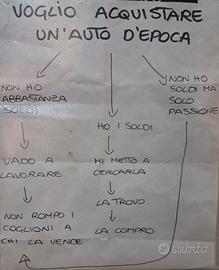 VOGLIO ACQUISTARE
UN'AUTO D'EPOCA
NON HO
ABBASTANZA
SOLDI
VADO A
LAVORARE
NON ROMPO I
COGLIONI A
CHI LA VENDE
HO I SOLDI
MI METTO A
CERCARLA
LA TROVO
LA COMPRO
NON HO
SOLDI MA
SOLO
PASSIONE
subito